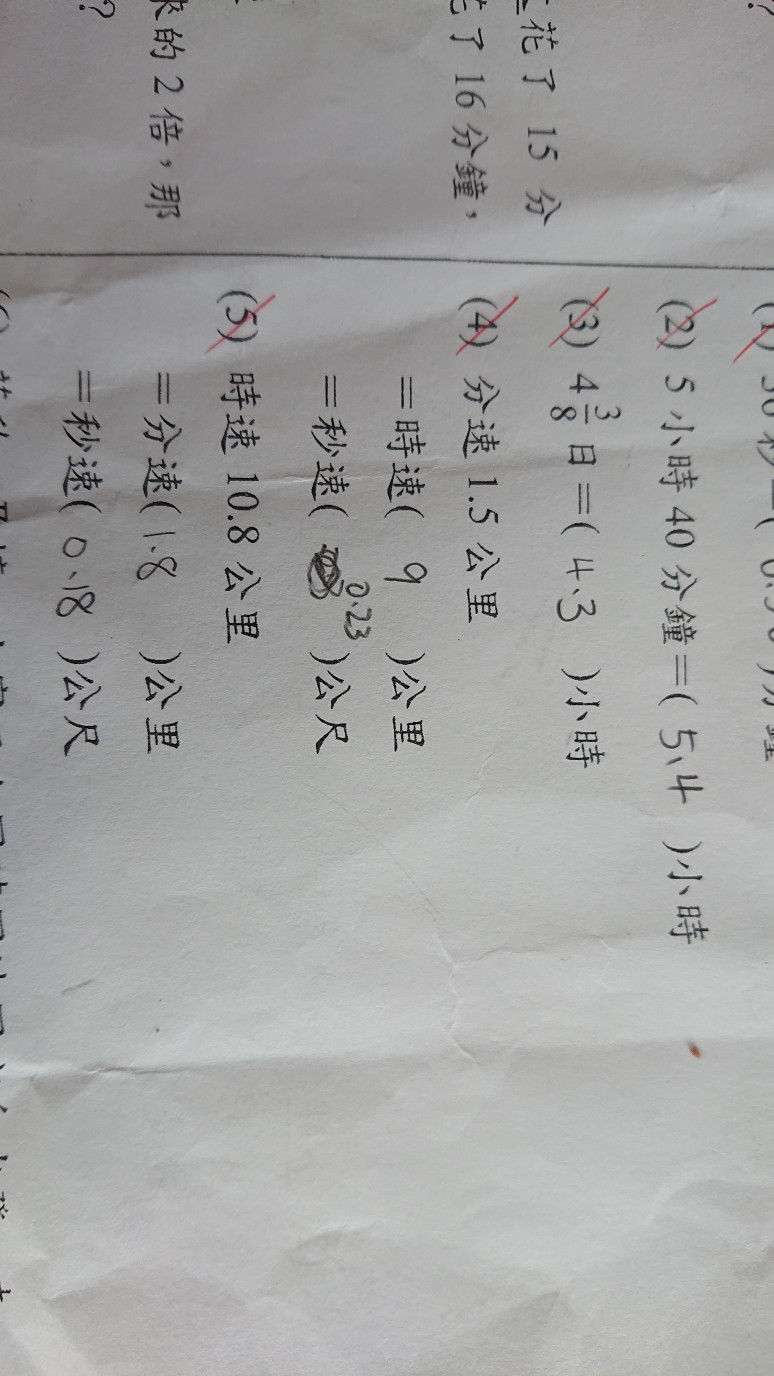 花了 15 分
花了 16 分鐘，
來的 2 倍，那
？
(2) 5 小時 40 分鐘＝( 5.4 )小時
(3) 4 3/8 日＝( 4.3 )小時
(4) 分速 1.5 公里
＝時速( 9 )公里
＝秒速( 0.23 )公尺
(5) 時速 10.8 公里
＝分速( 1.8 )公里
＝秒速( 0.18 )公尺